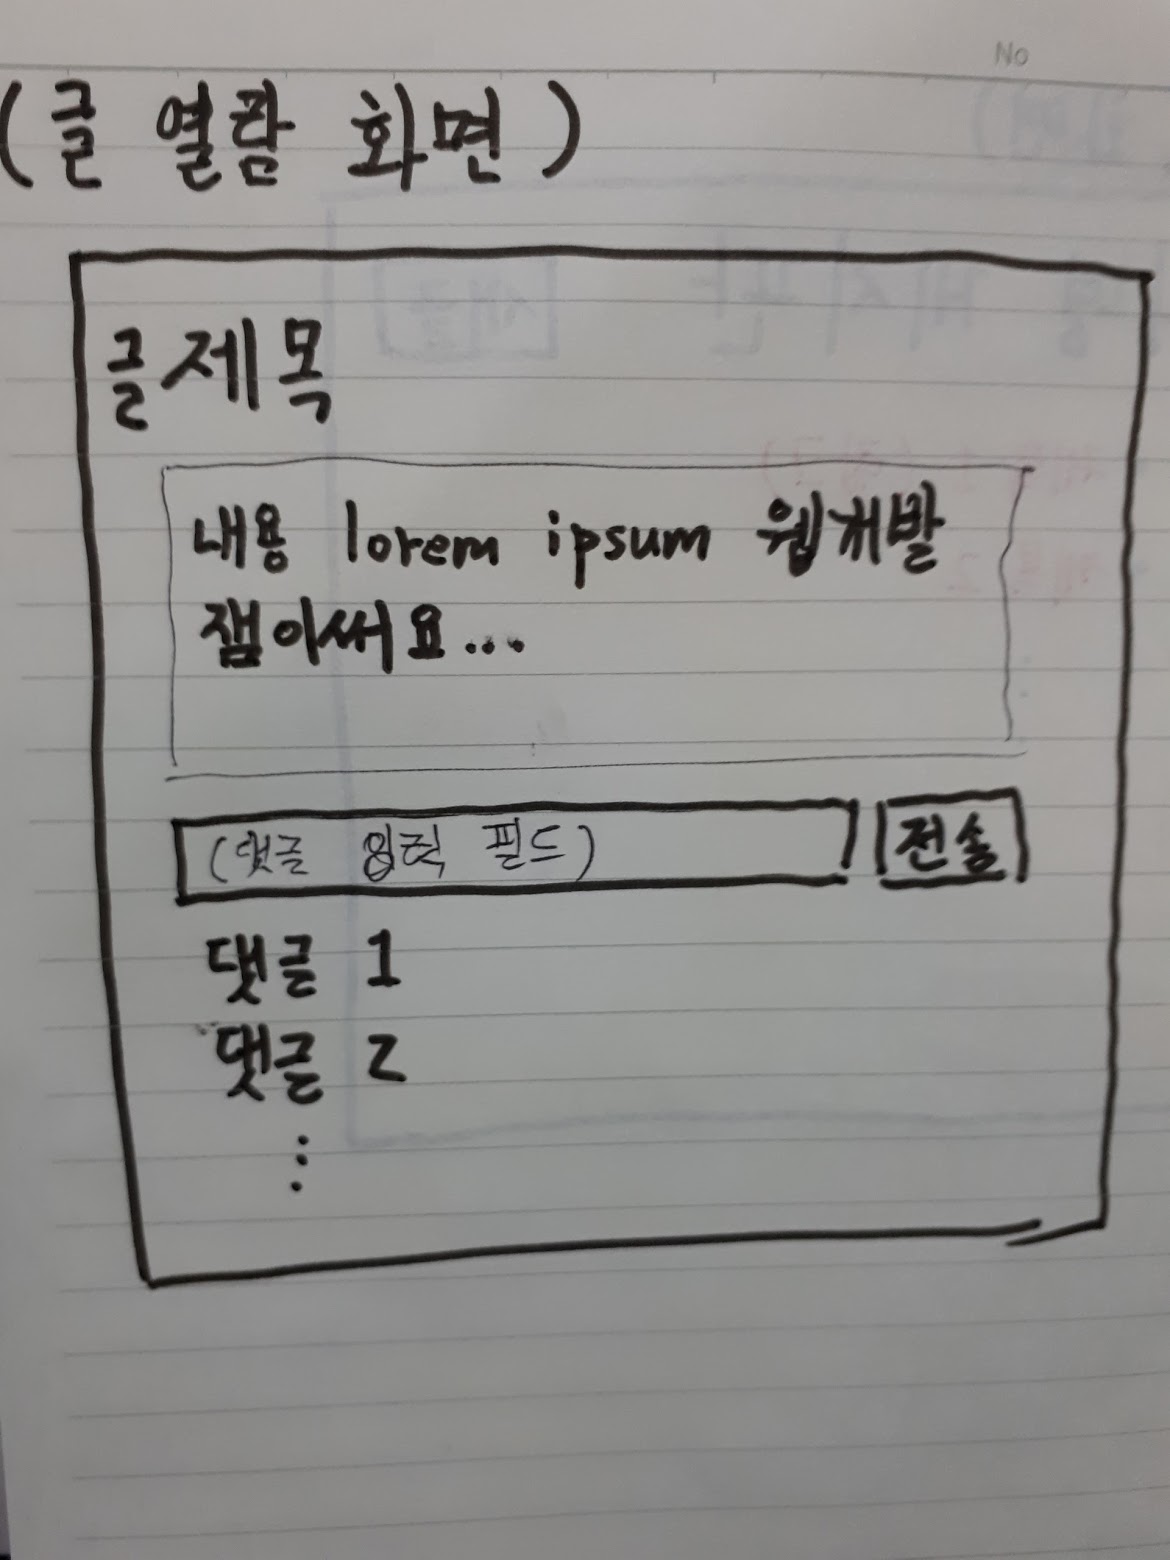 No
(글 열람 화면)
글제목
내용 lorem ipsum 웹개발
잼이써요...
(댓글 입력 필드) 전송
댓글 1
댓글 2
⋮